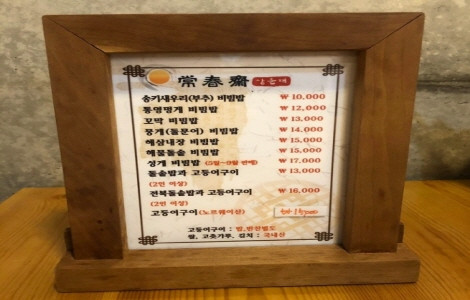 常春齋 상춘재
송키새우리(부추) 비빔밥 ₩ 10,000
통영멍게 비빔밥 ₩ 12,000
꼬막 비빔밥 ₩ 13,000
뭉게(돌문어) 비빔밥 ₩ 14,000
해삼내장 비빔밥 ₩ 15,000
해물돌솥 비빔밥 ₩ 15,000
성게 비빔밥 ₩ 17,000
돌솥밥과 고등어구이 ₩ 13,000
(2인 이상)
전복돌솥밥과 고등어구이 ₩ 16,000
(2인 이상)
고등어구이(노르웨이산)
고등어구이 : 밥,반찬별도
쌀, 고춧가루, 김치 : 국내산